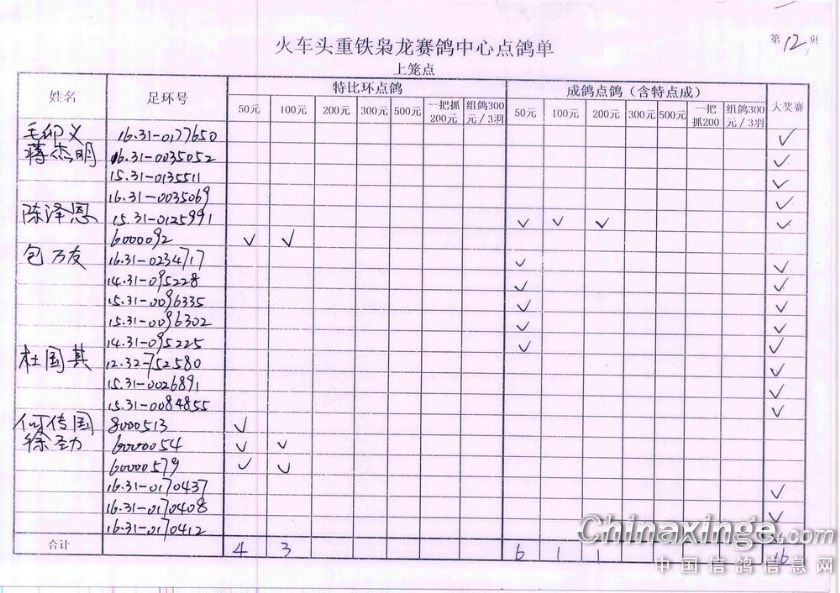 第12页
火车头重铁枭龙赛鸽中心点鸽单
上笼点
姓名 足环号 特比环点鸽 成鸽点鸽（含特点成） 大奖赛
50元 100元 200元 300元 500元 一把抓200元 组鸽300元/3羽 50元 100元 200元 300元 500元 一把抓200 组鸽300元/3羽
毛仰义 16.31-0177650 ✓
蒋杰明 16.31-0035052 ✓
15.31-0135511 ✓
16.31-0035069 ✓
陈泽恩 15.31-0125991 ✓ ✓ ✓ ✓
6000092 ✓ ✓
包万友 16.31-0234717 ✓ ✓
14.31-095228 ✓ ✓
15.31-0096335 ✓ ✓
15.31-0096302 ✓ ✓
14.31-095225 ✓ ✓
杜国其 12.32-752580 ✓
15.31-0026891 ✓
15.31-0084855 ✓
何传国 8000513 ✓
徐劲 6000054 ✓ ✓
6000579 ✓ ✓
16.31-0170437 ✓
16.31-0170408 ✓
16.31-0170412 ✓
合计 4 3 6 1 1 16
Chinaxinge.com
中国信鸽信息网